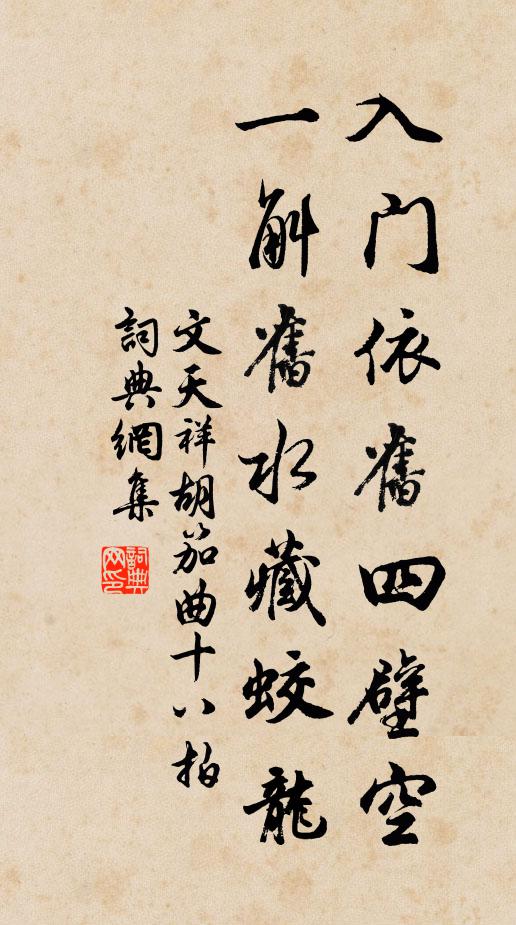 入门依舊四壁空
一斛舊水藏蛟龍
文天祥胡笳曲十八拍
詞典網集
詞典网印